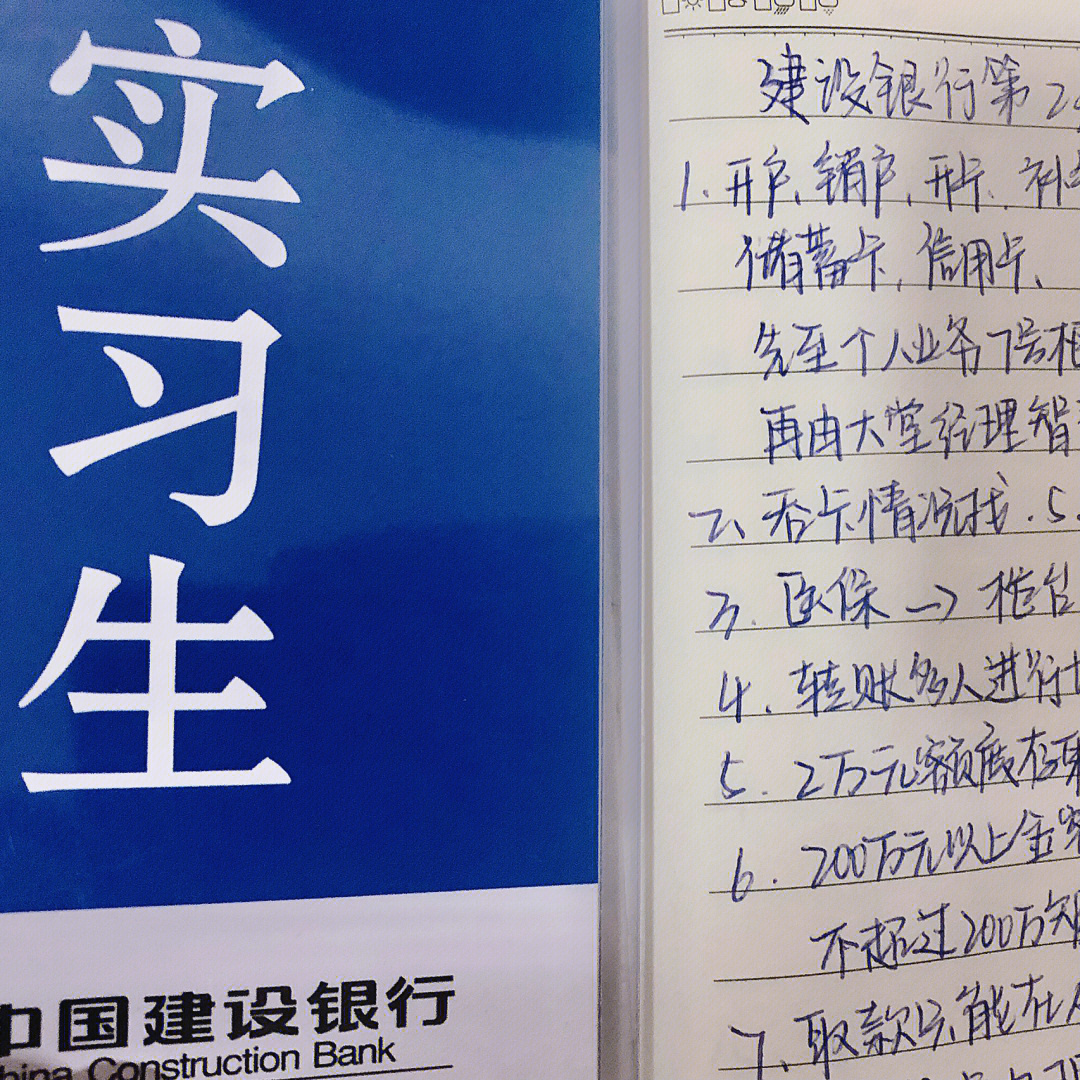 实
习
生
中国建设银行
China Construction Bank
建设银行第2
1. 开户、销户、开卡、补
储蓄卡,信用卡、
先至个人业务7号柜
再由大堂经理智
2、吞卡情况找.5.
3. 医保→柜台
4. 转账多人进行
5. 2万元额度存取
6. 200万元以上金额
不超过200万
7、取款只能在人